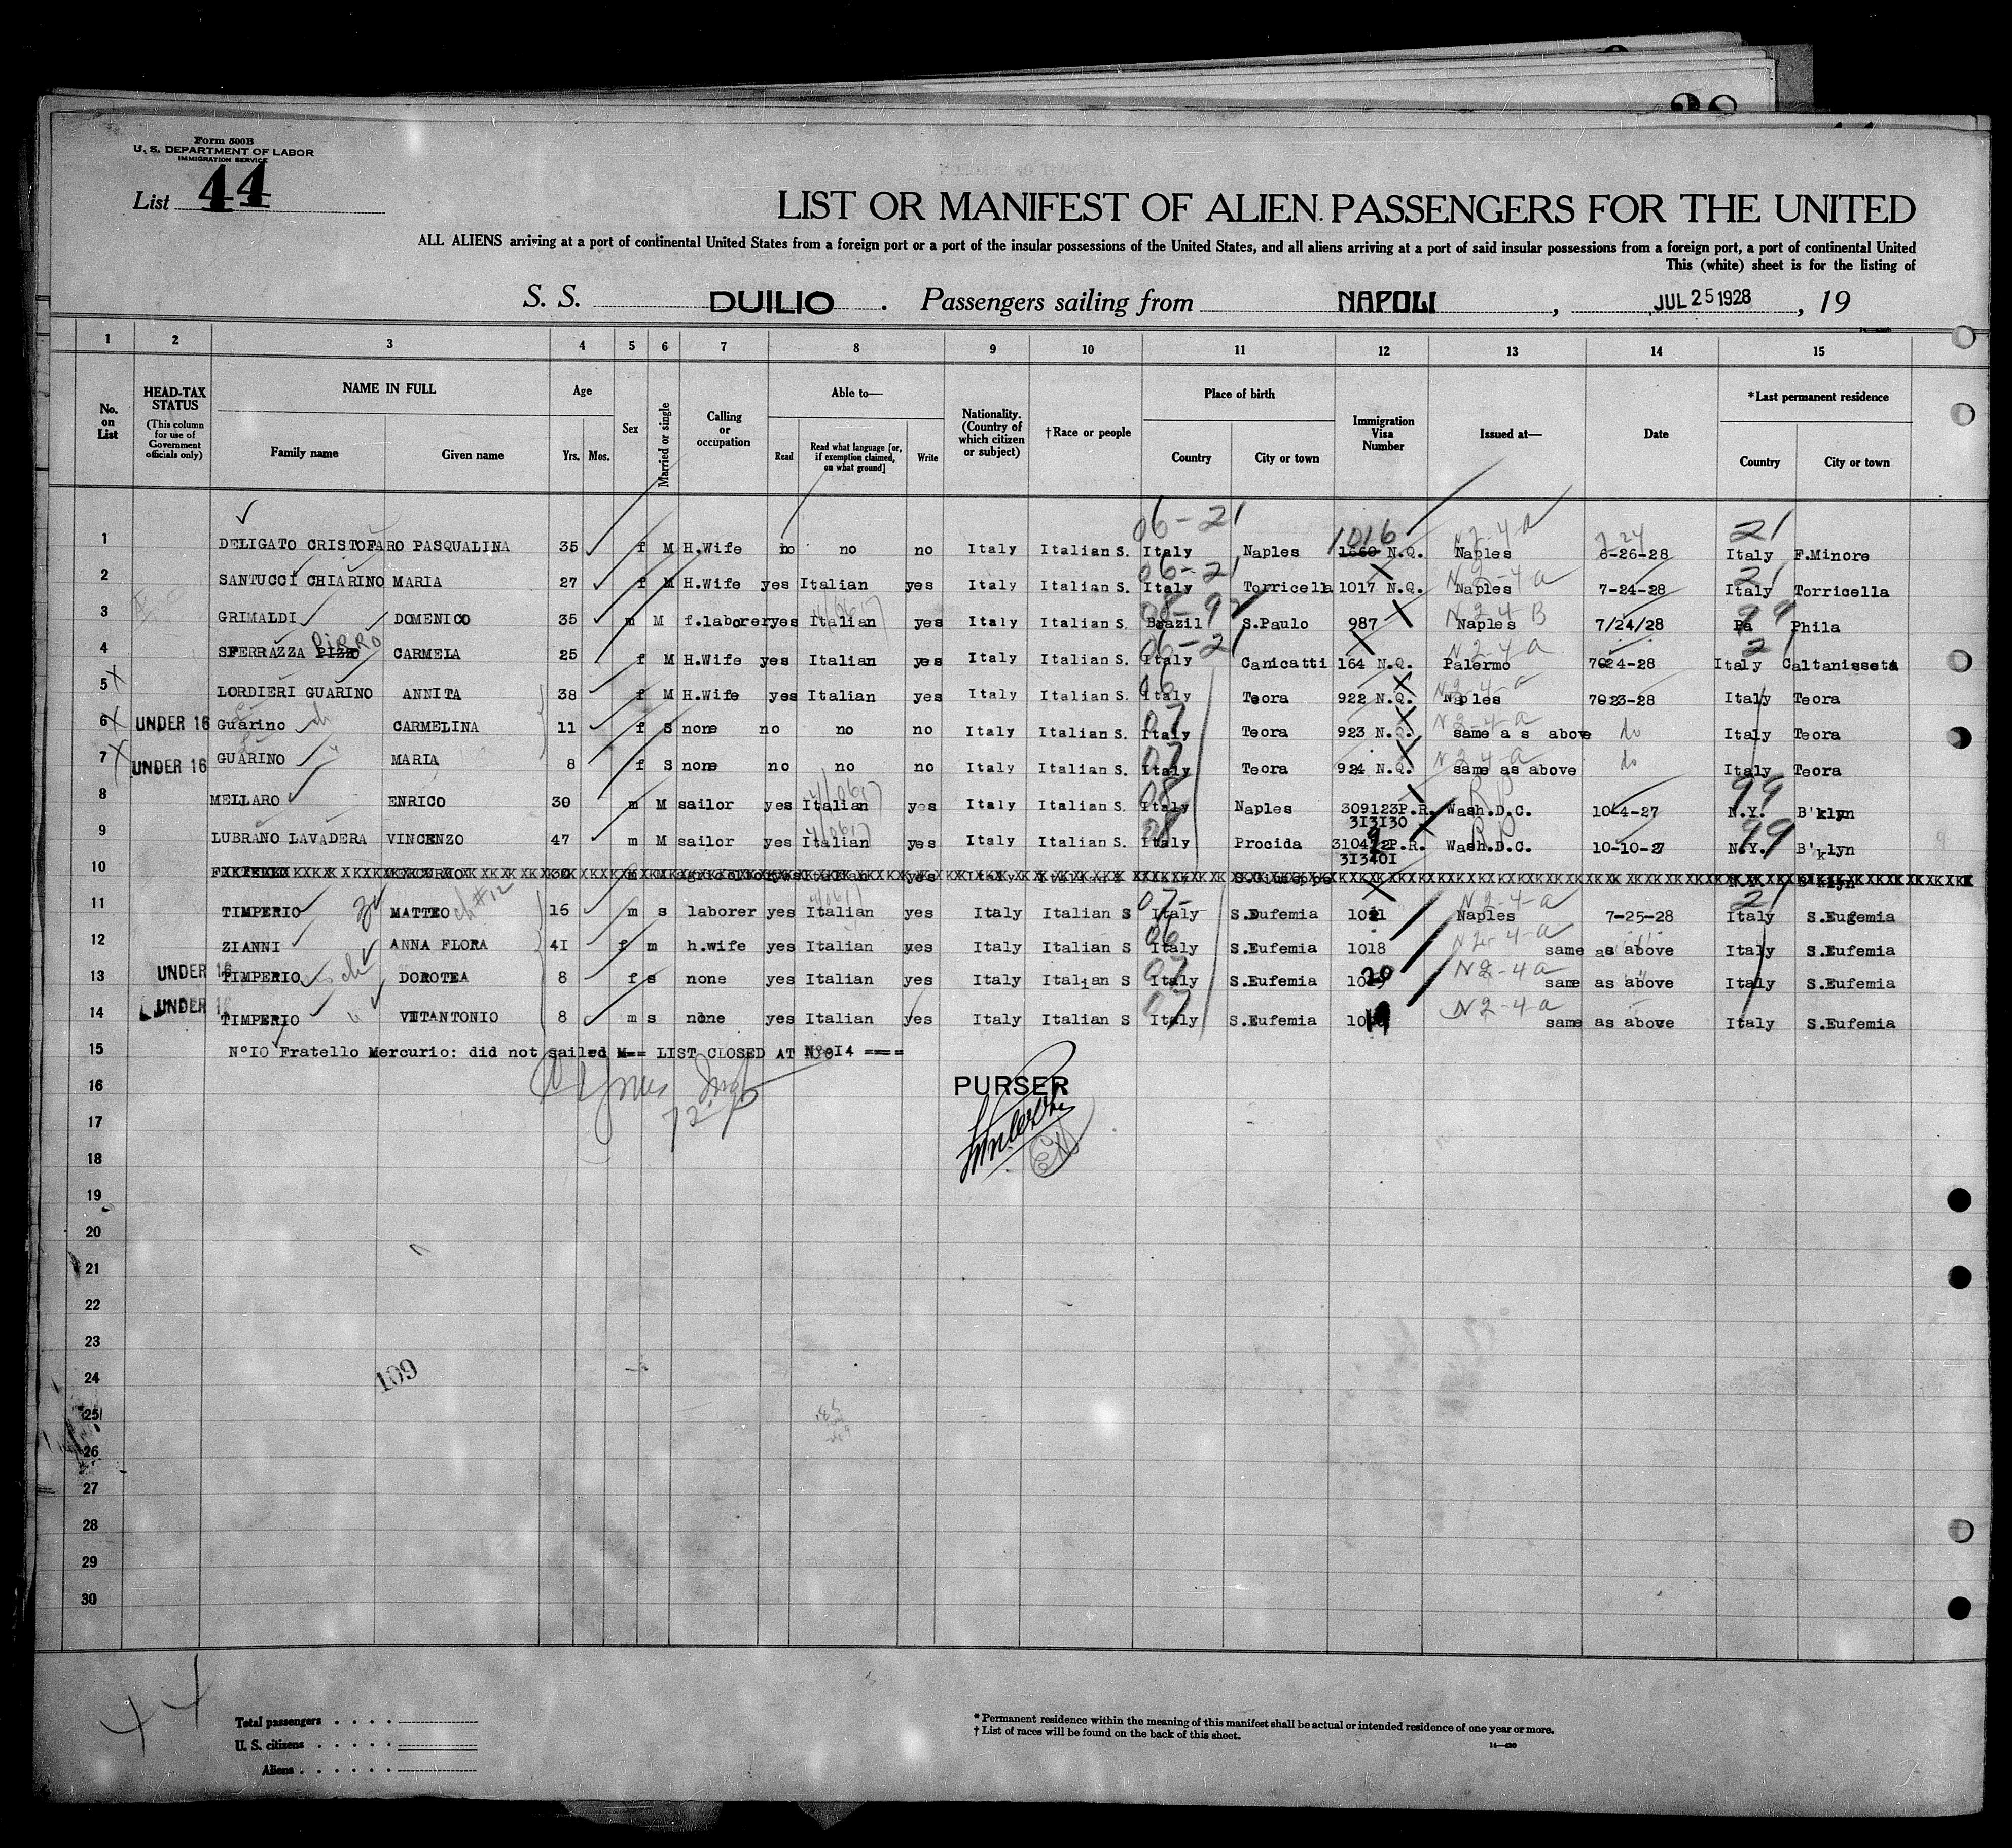 Form 500B
U. S. DEPARTMENT OF LABOR
IMMIGRATION SERVICE
List 44
LIST OR MANIFEST OF ALIEN PASSENGERS FOR THE UNITED
ALL ALIENS arriving at a port of continental United States from a foreign port or a port of the insular possessions of the United States, and all aliens arriving at a port of said insular possessions from a foreign port, a port of continental United
This (white) sheet is for the listing of
S. S. DUILIO . Passengers sailing from NAPOLI , JUL 25 1928 , 19
1 2 3 4 5 6 7 8 9 10 11 12 13 14 15
No. on List
HEAD-TAX STATUS (This column for use of Government officials only)
NAME IN FULL
Family name Given name
Age
Yrs. Mos.
Sex
Married or single
Calling or occupation
Able to—
Read Read what language [or, if exemption claimed, on what ground] Write
Nationality. (Country of which citizen or subject)
†Race or people
Place of birth
Country City or town
Immigration Visa Number
Issued at—
Date
*Last permanent residence
Country City or town
06-21 1016 N2-4a 7 24 21
1 DELIGATO CRISTOFARO PASQUALINA 35 f M H.Wife no no no Italy Italian S. Italy Naples 1660 N.Q. Naples 6-26-28 Italy F.Minore
06-21 N2-4a 21
2 SANTUCCI CHIARINO MARIA 27 f M H.Wife yes Italian yes Italy Italian S. Italy Torricella 1017 N.Q. Naples 7-24-28 Italy Torricella
08-97 N24-B 99
3 GRIMALDI DOMENICO 35 m M f.laborer yes Italian yes Italy Italian S. Brazil S.Paulo 987 Naples 7/24/28 Pa Phila
PIRRO 06-21 N2-4a 21
4 SFERRAZZA PIZZO CARMELA 25 f M H.Wife yes Italian yes Italy Italian S. Italy Canicatti 164 N.Q. Palermo 7-24-28 Italy Caltanisseta
06 N2-4-a
5 LORDIERI GUARINO ANNITA 38 f M H.Wife yes Italian yes Italy Italian S. Italy Teora 922 N.Q. Naples 7-23-28 Italy Teora
07 N2-4-a
6 UNDER 16 Guarino ch CARMELINA 11 f S none no no no Italy Italian S. Italy Teora 923 N.Q. same as above do Italy Teora
07 N24-a
7 UNDER 16 GUARINO " MARIA 8 f S none no no no Italy Italian S. Italy Teora 924 N.Q. same as above do Italy Teora
08 RP 99
8 MELLARO ENRICO 30 m M sailor yes Italian yes Italy Italian S. Italy Naples 309123P.R. Wash.D.C. 10-4-27 N.Y. B'klyn
313130
08 RP 99
9 LUBRANO LAVADERA VINCENZO 47 m M sailor yes Italian yes Italy Italian S. Italy Procida P.R. Wash.D.C. 10-10-27 N.Y. B'klyn
313401
10
ch #12 07- N2-4-a 21
11 TIMPERIO MATTEO 16 m s laborer yes Italian yes Italy Italian S Italy S.Eufemia 1021 Naples 7-25-28 Italy S.Eugemia
06 N2-4-a
12 ZIANNI ANNA FLORA 41 f m h.wife yes Italian yes Italy Italian S Italy S.Eufemia 1018 same as above Italy S.Eufemia
07 N2-4a
13 UNDER 16 TIMPERIO ch DOROTEA 8 f s none yes Italian yes Italy Italian S Italy S.Eufemia 1020 same as above Italy S.Eufemia
07 N2-4a
14 UNDER 16 TIMPERIO " VITANTONIO 8 m s none yes Italian yes Italy Italian S Italy S.Eufemia 1019 same as above Italy S.Eufemia
15 N°10 Fratello Mercurio: did not sailed === LIST CLOSED AT N°14 ====
16 PURSER
17
18
19
20
21
22
23
24 109
25
26
27
28
29
30
Total passengers . . . .
U. S. citizens . . . . .
Aliens . . . . . .
* Permanent residence within the meaning of this manifest shall be actual or intended residence of one year or more.
† List of races will be found on the back of this sheet.